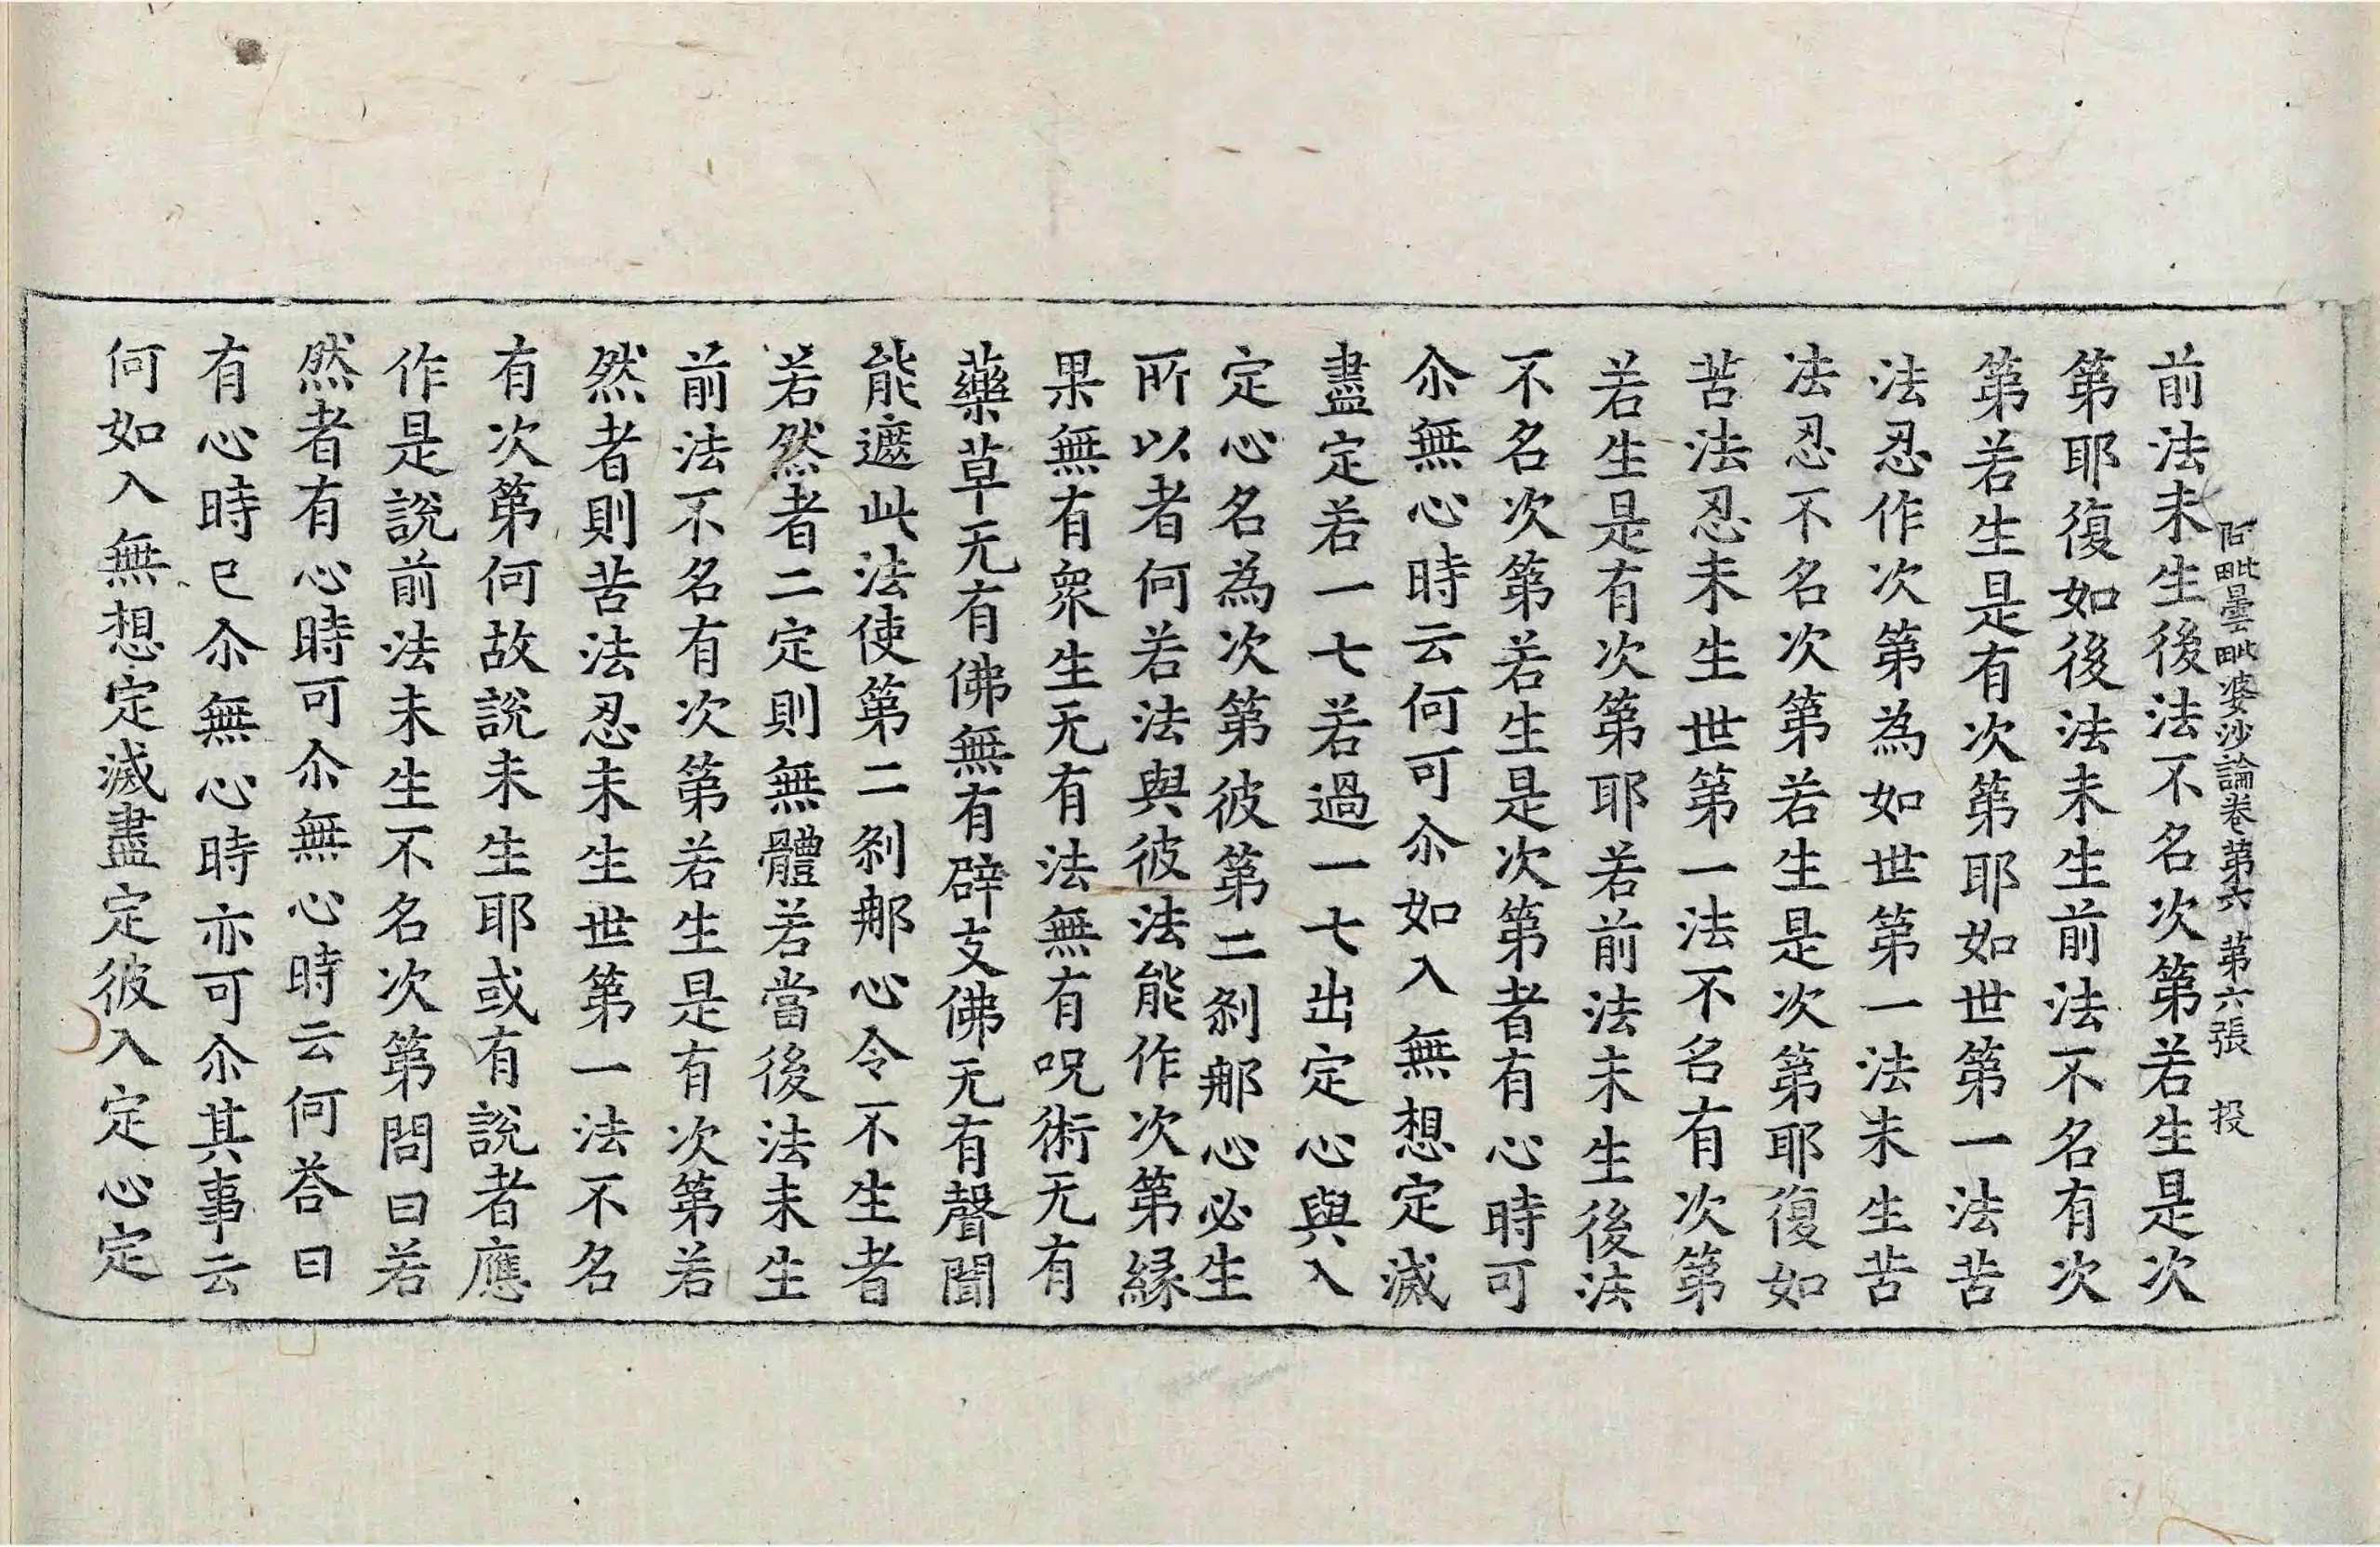 阿毗曇毗婆沙論卷第六 第六張 投
前法未生後法不名次第若生是次
第耶復如後法未生前法不名有次
第若生是有次第耶如世第一法苦
法忍作次第為如世第一法未生苦
法忍不名次第若生是次第耶復如
苦法忍未生世第一法不名有次第
若生是有次第耶若前法未生後法
不名次第若生是次第者有心時可
尒無心時云何可尒如入無想定滅
盡定若一七若過一七出定心與入
定心名為次第彼第二剎那心必生
所以者何若法與彼法能作次第緣
果無有衆生无有法無有呪術无有
藥草无有佛無有辟支佛无有聲聞
能遮此法使第二剎那心令不生者
若然者二定則無體若當後法未生
前法不名有次第若生是有次第若
然者則苦法忍未生世第一法不名
有次第何故說未生耶或有說者應
作是說前法未生不名次第問曰若
然者有心時可尒無心時云何荅曰
有心時已尒無心時亦可尒其事云
何如入無想定滅盡定彼入定心定